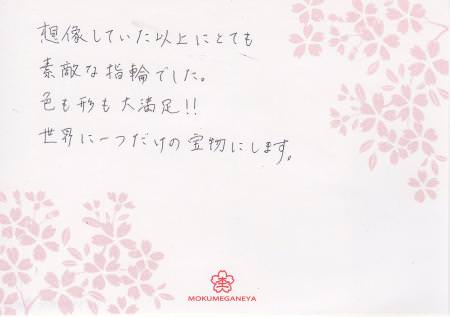 想像していた以上にとても
素敵な指輪でした。
色も形も大満足!!
世界に一つだけの宝物にします。
MOKUMEGANEYA